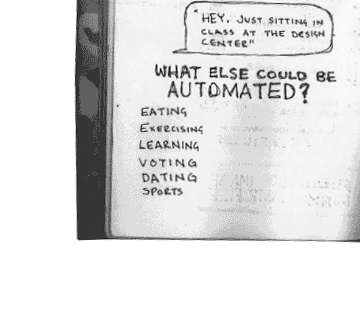 "HEY, JUST SITTING IN
CLASS AT THE DESIGN
CENTER"
WHAT ELSE COULD BE
AUTOMATED?
EATING
EXERCISING
LEARNING
VOTING
DATING
SPORTS